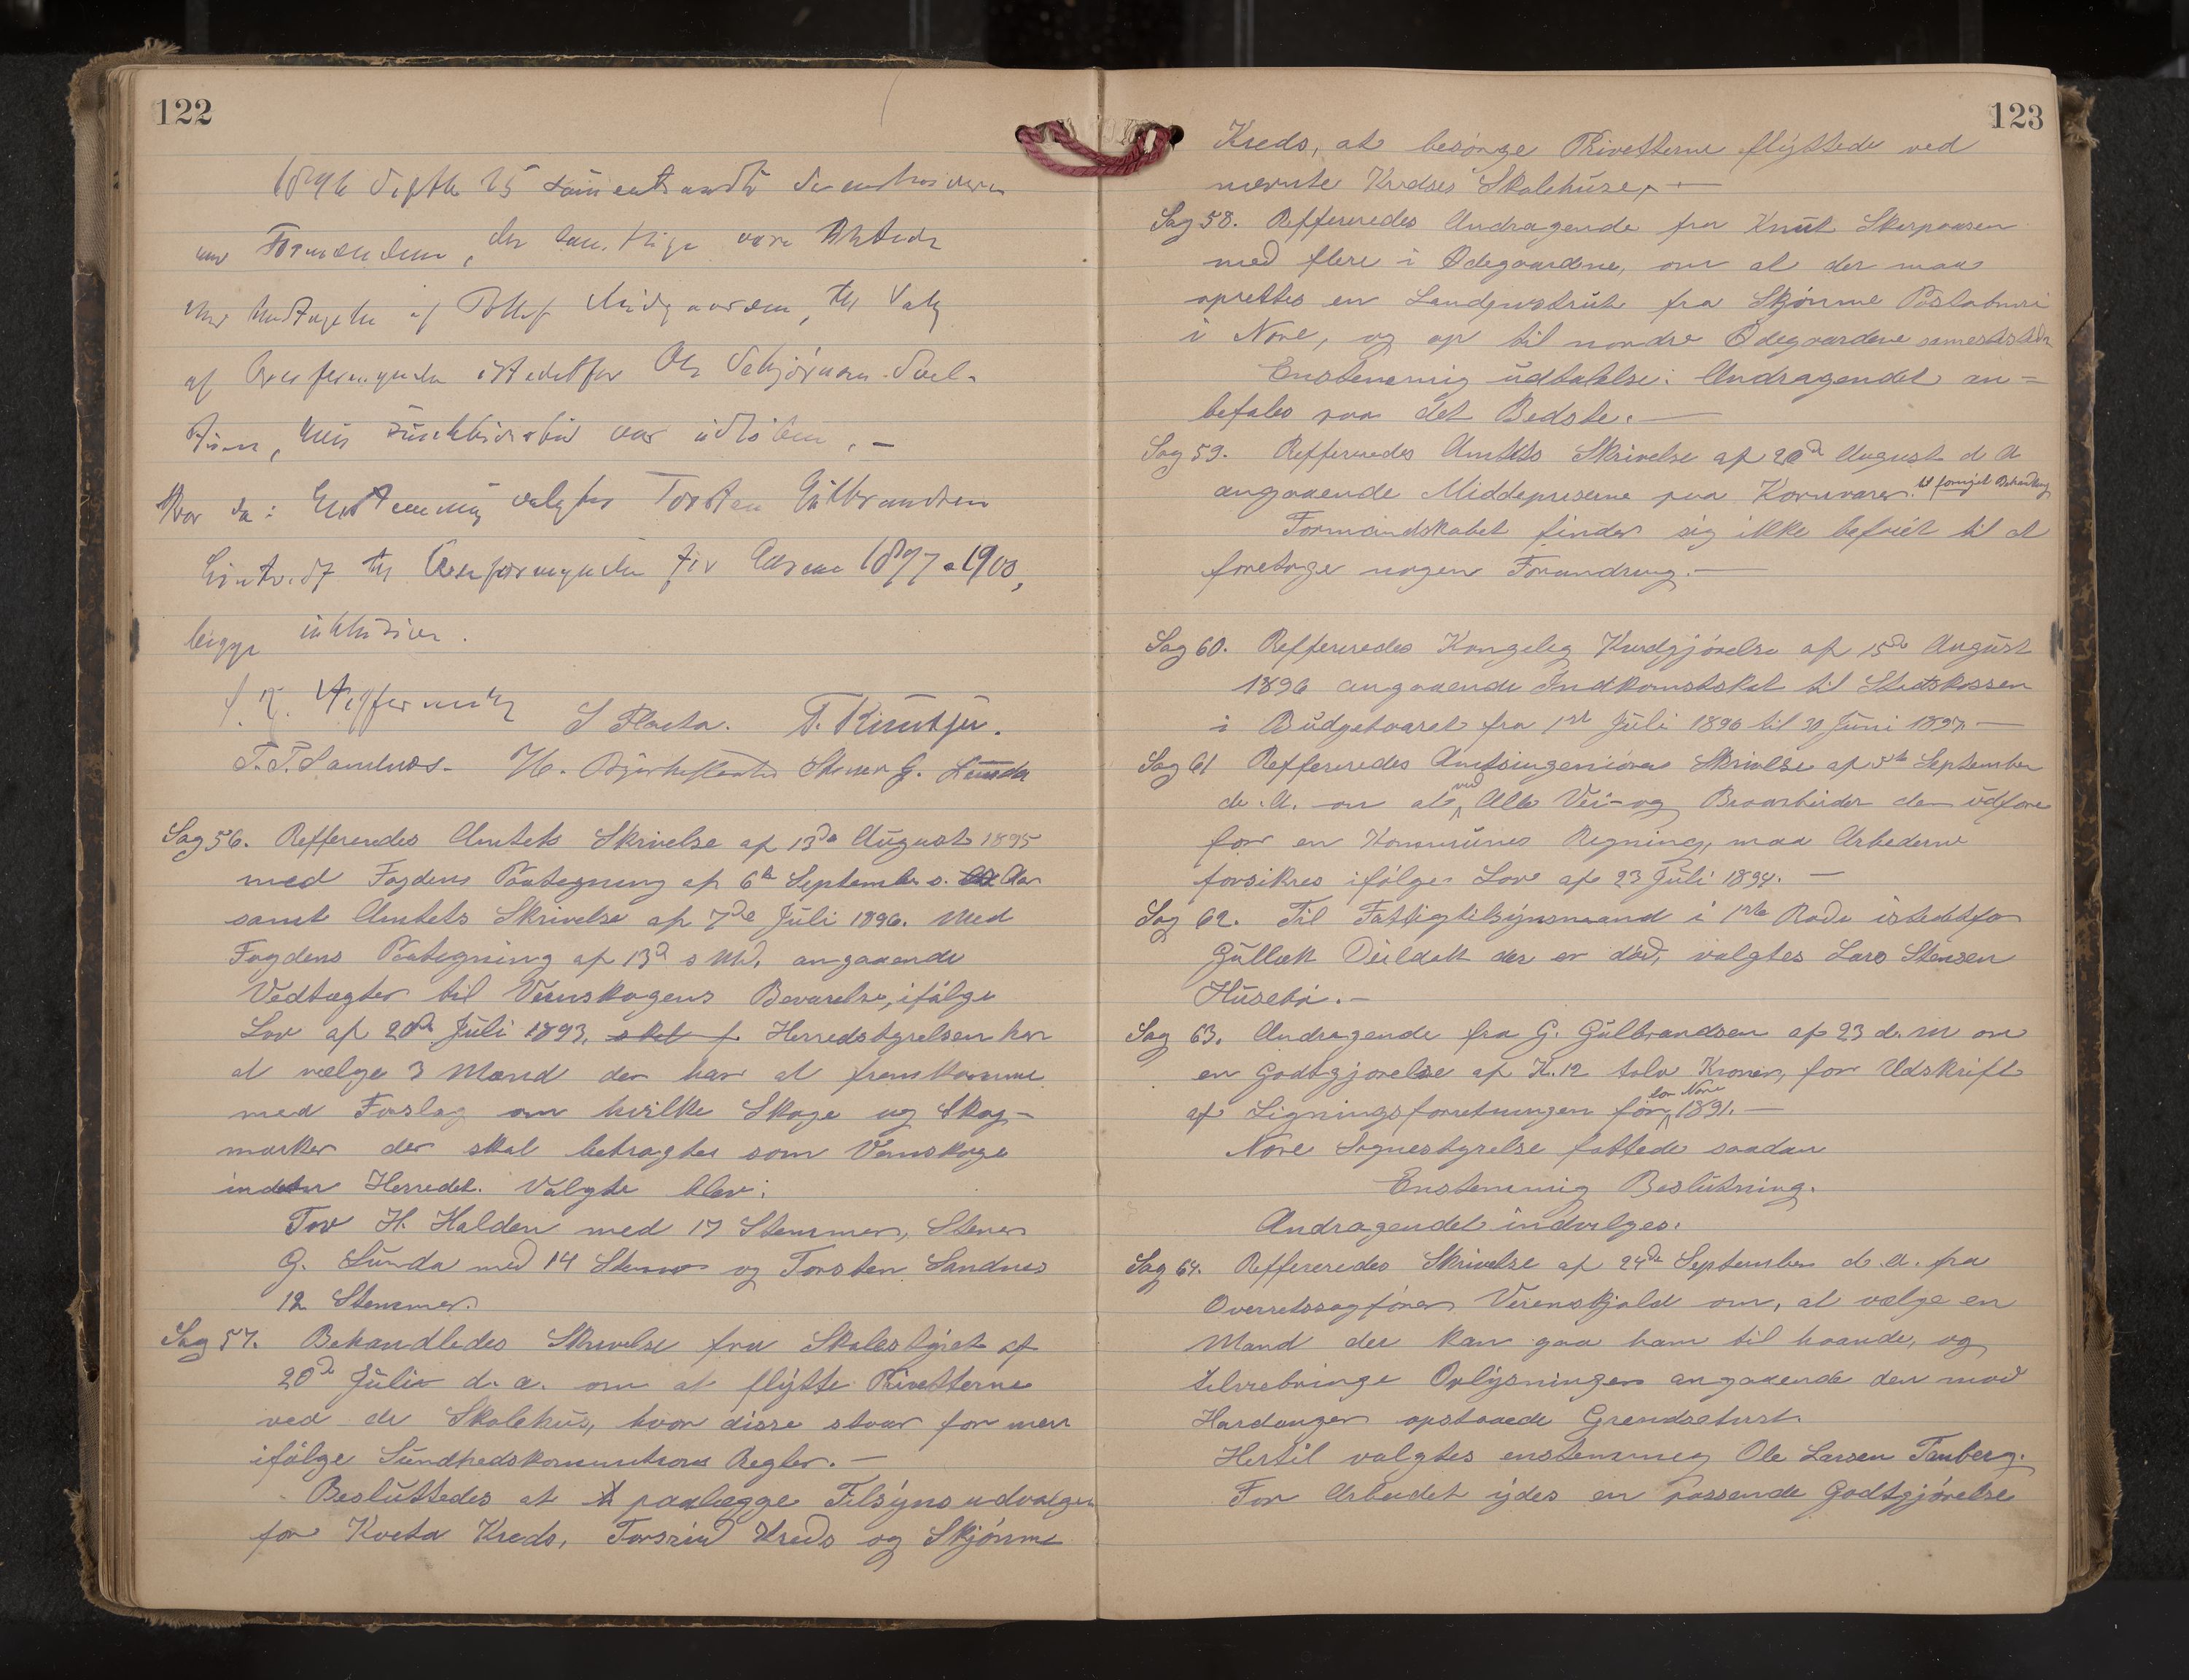 122
1896 Septbr 25 sammentraadte
Formændene, der samtlige vare
af Overformynder istedetfor Ole
var udløben. –
Hvor da: Enstemmig valgtes Torsten Gulbrandsen
til Overformynder for Aarene 1897 a 1900,
begge inklusive.
S Flaata. T. Rimtjen.
T. T. Sandnes. H. Stener G. Lunda
Sag 56. Reffereredes Amtets Skrivelse af 13de August 1895
med Fogdens Paategning af 6te Septembr s. Aar
samt Amtets Skrivelse af 7de Juli 1896. Med
Fogdens Paategning af 13d s Md. angaaende
Vedtægter til Vernskogens Bevarelse, ifølge
Lov af 20de Juli 1893, skal f Herredstyrelsen har
at vælge 3 Mænd der har at fremkomme
med Forslag om hvilke Skoge og Skog-
marker der skal betragtes som Vernskoge
inden Herredet. Valgte blev:
Tov H. Halden med 17 Stemmer, Stener
G. Lunda med 14 Stemmer og Torsten Sandnes
12 Stemmer.
Sag 57. Behandledes Skrivelse fra Skolestyret af
20de Juli d. a. om at flytte Privetterne
ved de Skolehus, hvor disse staar for nær
ifølge Sundhedskommitions Regler. –
Besluttedes at paalægge Tilsynsudvalgen
for Kveta Kreds, Kreds og Skjønne
123
Kreds, at besørge Privetterne flyttede ved
nævnte Kredses Skolehuse. –
Sag 58. Reffereredes Andragende fra Knut Skarpaasen
med flere i Ødegaardene, om at der maa
oprettes en Landpostrute fra Skjønne Postaabneri
i Nore, og op til nordre Ødegaardene samestds
Enstemmig udtalelse: Andragendet an=
befales paa det Bedste. –
Sag 59. Reffereredes Amtets Skrivelse af 20d August d A
angaaende Middepriserne paa Kornvarer. til fornyet Behandling
Formandskabet finder sig ikke beføiet til at
foretage nogen Forandring. –
Sag 60. Reffereredes Kongelig Kundgjørelse af 15de August
1896 angaaende Indkomstskat til Statskassen
i Budgetaaret fra 1ste Juli 1896 til 30 Juni 1897. –
Sag 61 Reffereredes Amtsingeniørens Skrivelse af 5te September
d. A. om at ved Alle Vei- og Broarbeider der udføres
for en Kommunes Regning, maa Arbederne
forsikres ifølge Lov af 23 Juli 1894. –
Sag 62. Til Fattigtilsynsmand i 1ste Rode istedetfor
Gullek Deildok der er død, valgtes Lars Stensen
Husebø. –
Sag 63. Andragende fra G. Gulbrandsen af 23 d. M om
en Godtgjørelse af K. 12 tolv Kroner, for Udskrift
af Ligningsforretningen for Nore 1891. –
Nore Sognestyrelse fattede saadan
Enstemmig Beslutning.
Andragendet indvilges.
Sag 64. Reffereredes Skrivelse af 24de September d. a. fra
Overretssagfører Verenskjold om, at vælge en
Mand der kan gaa ham til haande, og
tilvebringe Oplysninger angaaende den mod
Hardanger opstaaede Grendsetvist.
Hertil valgtes enstemmig Ole Larsen Tanberg.
For Arbeidet ydes en passende Godtgjørelse